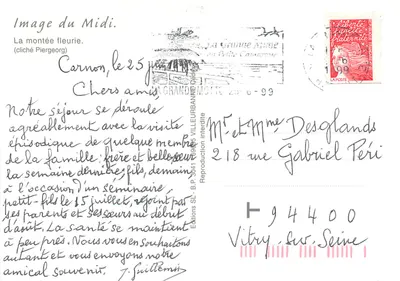 Image du Midi.
La montée fleurie.
(cliché Piergeorg)
Carnon, le 25 juin
Chers amis,
Notre séjour se déroule
agréablement avec la visite
épisodique de quelque membre
de la famille: frère et belle-sœur
la semaine dernière, fils, demain
à l'occasion d'un séminaire,
petit-fils le 15 juillet, rejoint par
ses parents et ses sœurs au début
d'août. La santé se maintient
à peu près. Nous vous en souhaitons
autant et vous envoyons notre
amical souvenir. J. Guillemin
Reproduction interdite
LA GRANDE MOTTE
Mr et Mme Desglands
218 rue Gabriel Péri
94400
Vitry-sur-Seine